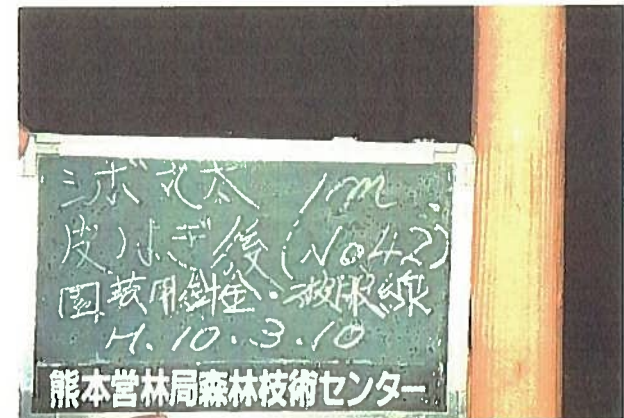 シボ丸太 1m
皮はぎ後(No42)
園芸用針金・被服線
H.10.3.10
熊本営林局森林技術センター